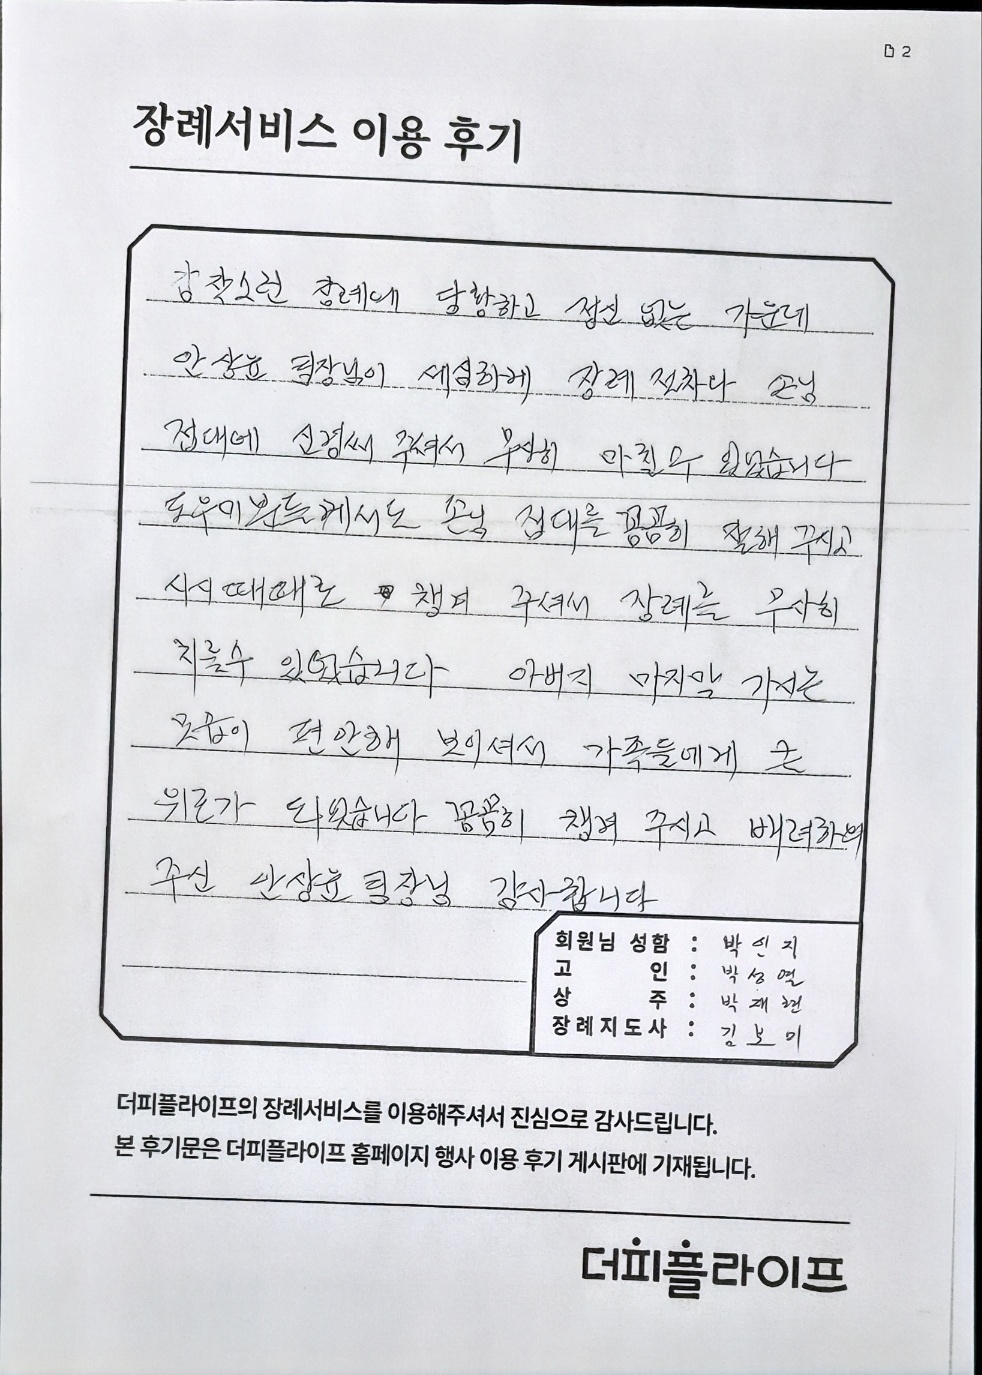 2
장례서비스 이용 후기
갑작스런 장례에 당황하고 정신 없는 가운데
안상윤 팀장님이 세심하게 장례 절차나 손님
접대에 신경써 주셔서 무사히 마칠수 있었습니다
도우미분들께서도 손님 접대를 꼼꼼히 잘해 주시고
시시때때로 챙겨 주셔서 장례를 무사히
치를수 있었습니다 아버지 마지막 가시는
모습이 편안해 보이셔서 가족들에게 큰
위로가 되었습니다 꼼꼼히 챙겨 주시고 배려하여
주신 안상윤 팀장님 감사합니다
회원님 성함 : 박인지
고 인 : 박성열
상 주 : 박재현
장례지도사 : 김보미
더피플라이프의 장례서비스를 이용해주셔서 진심으로 감사드립니다.
본 후기문은 더피플라이프 홈페이지 행사 이용 후기 게시판에 기재됩니다.
더피플라이프